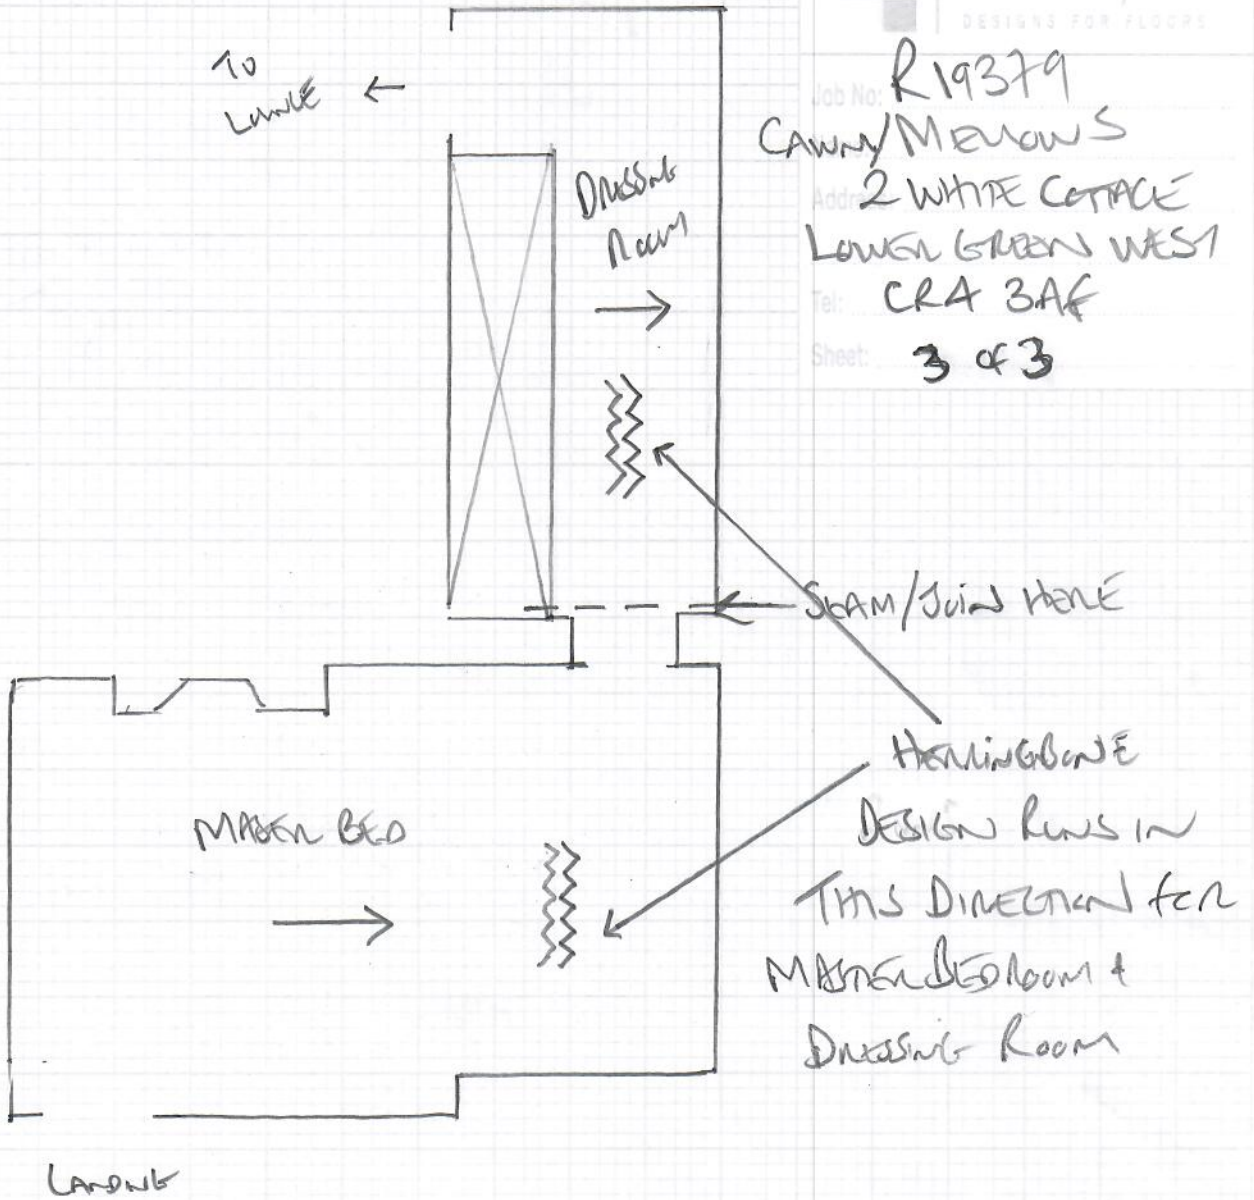 DESIGNS FOR FLOORS
Job No: R19379
CAWN/MELLOWS
Address: 2 WHITE COTTAGE
LOWER GREEN WEST
Tel: CR4 3AF
Sheet: 3 of 3
TO
LOUNGE
DRESSING
ROOM
SEAM/JOIN HERE
HERRINGBONE
DESIGN RUNS IN
THIS DIRECTION FOR
MASTER BEDROOM &
DRESSING ROOM
MASTER BED
LANDING